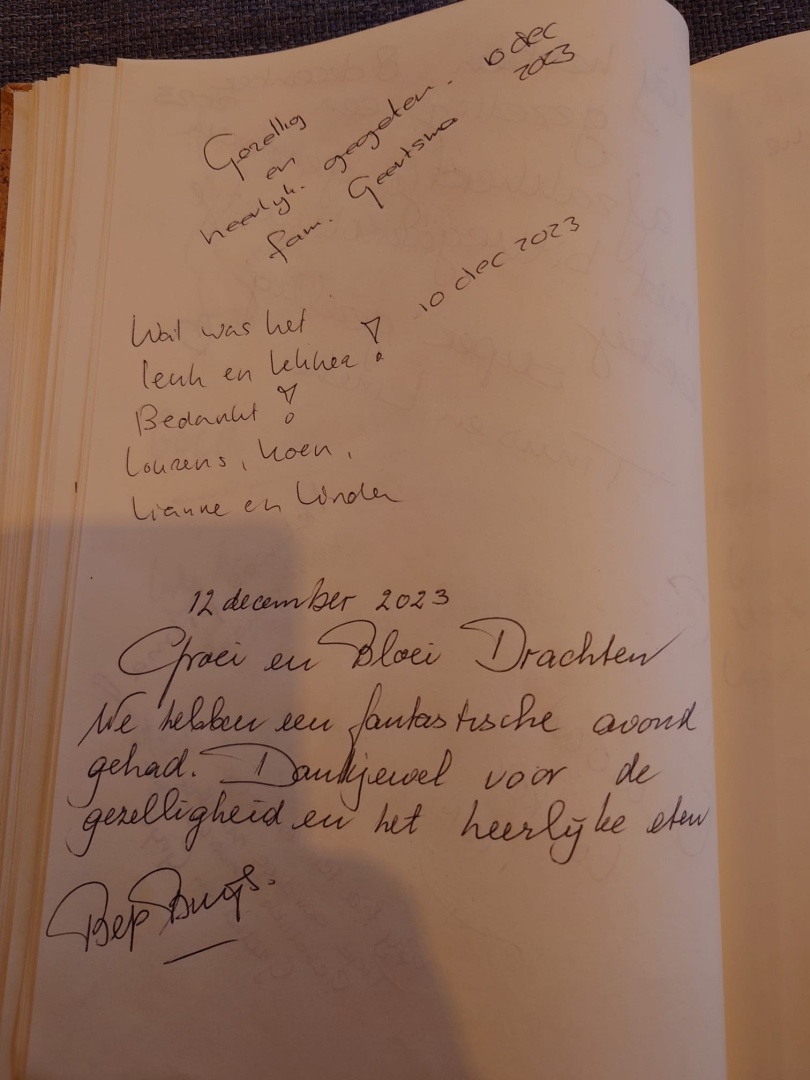 Gezellig
en
heerlijk. gegeten. 10 dec
2023
fam. Geertsma
10 dec 2023
Wat was het
leuk en lekker!
Bedankt!
Lourens, Koen,
Lianne en Linda
12 december 2023
Groei en Bloei Drachten
We hebben een fantastische avond
gehad. Dankjewel voor de
gezelligheid en het heerlijke eten
Bep Buys.